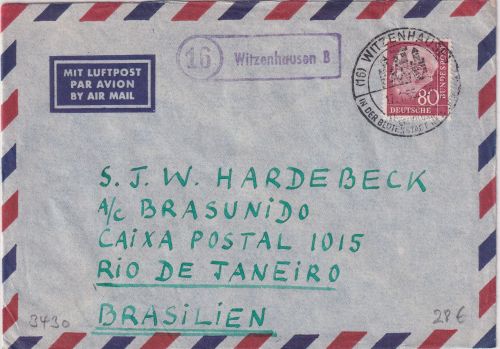 MIT LUFTPOST
PAR AVION
BY AIR MAIL
16 Witzenhausen B
(16) WITZENHAUSEN
IN DER
80
DEUTSCHE
BUNDESPOST
S. J. W. HARDEBECK
A/C BRASUNIDO
CAIXA POSTAL 1015
RIO DE TANEIRO
BRASILIEN
3430
28 €